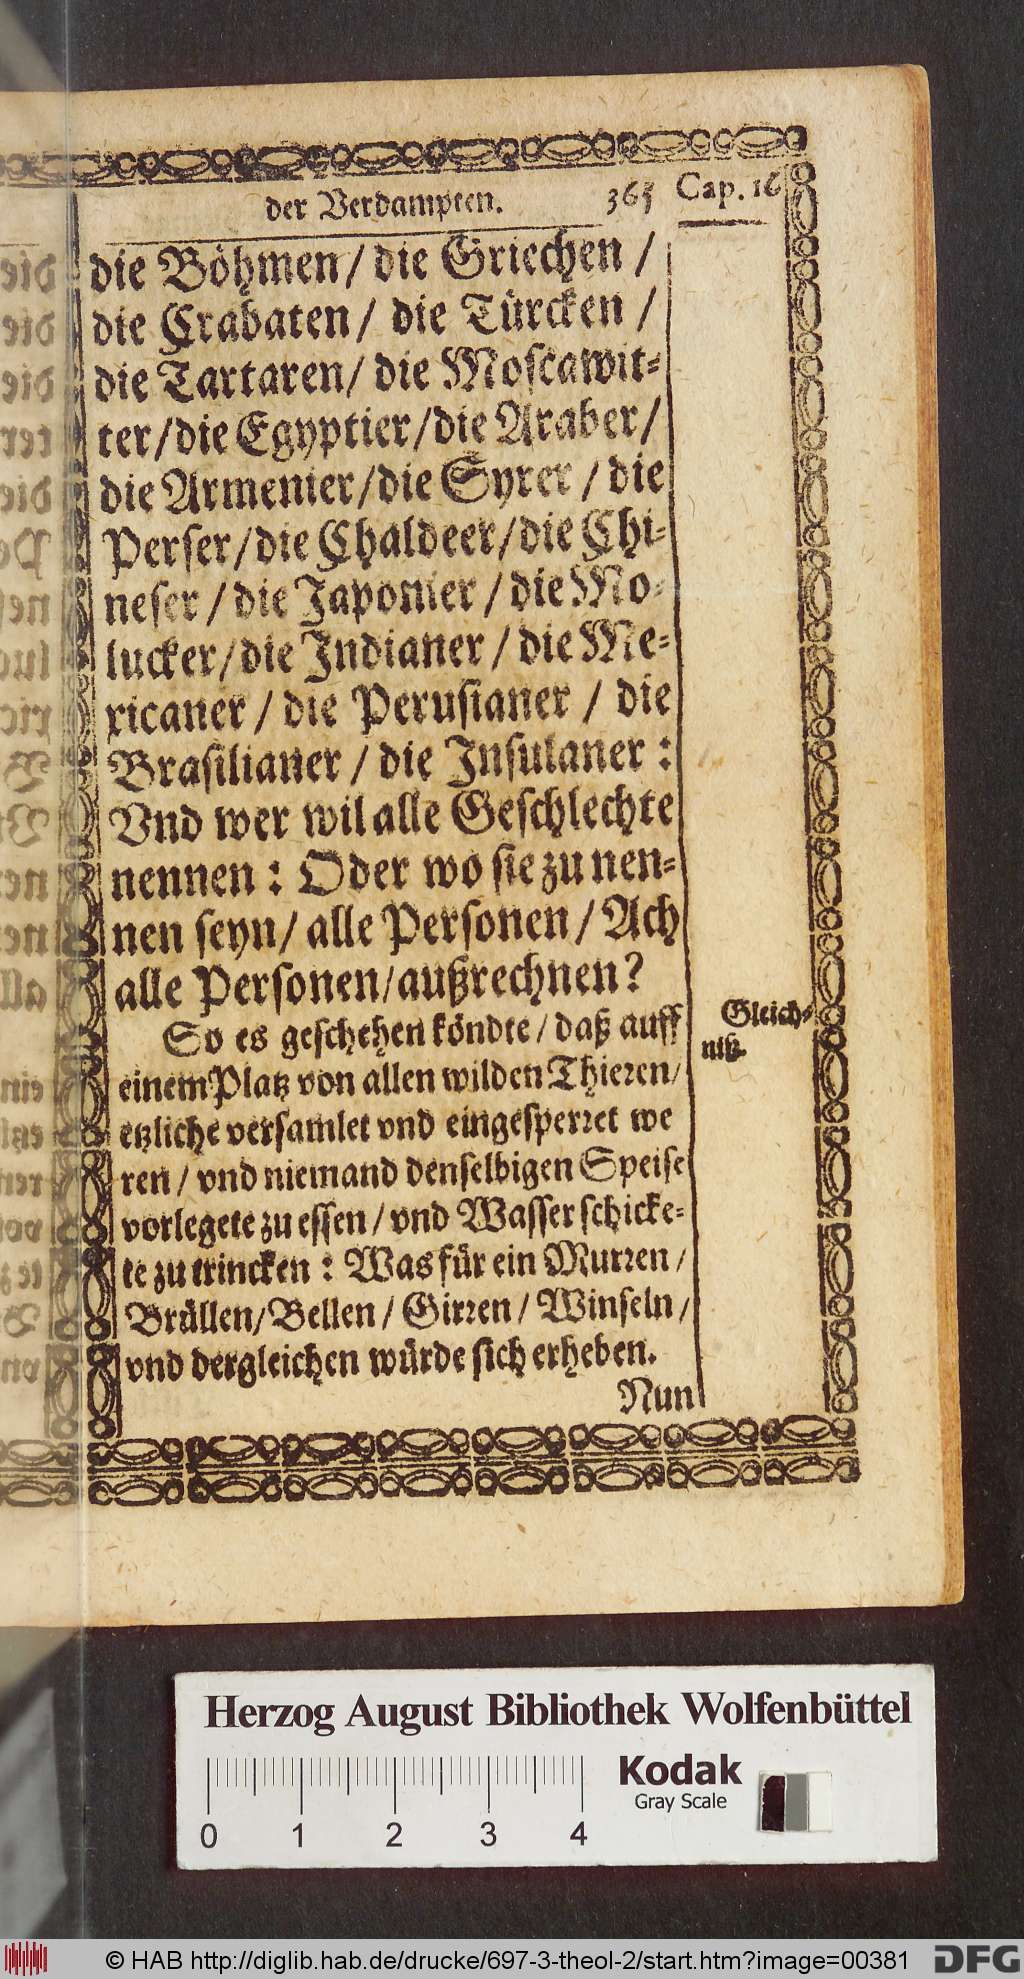 der Verdampten. 365 Cap. 16
die Böhmen / die Griechen /
die Crabaten / die Türcken /
die Tartaren / die Moscawit-
ter / die Egyptier / die Araber /
die Armenier / die Syrer / die
Perser / die Chaldeer / die Chi-
neser / die Japonier / die Mo-
lucker / die Indianer / die Me-
xicaner / die Perusianer / die
Brasilianer / die Insulaner :
Vnd wer wil alle Geschlechte
nennen : Oder wo sie zu nen-
nen seyn / alle Personen / Ach
alle Personen / außrechnen?
So es geschehen köndte / daß auff
Gleich-
niß.
einem Platz von allen wilden Thieren /
etzliche versamlet vnd eingesperret we
ren / vnd niemand denselbigen Speise
vorlegete zu essen / vnd Wasser schicke-
te zu trincken : Was für ein Murren /
Brüllen / Bellen / Girren / Winseln /
vnd dergleichen würde sich erheben.
Nun
Herzog August Bibliothek Wolfenbüttel
Kodak
Gray Scale
0 1 2 3 4
© HAB http://diglib.hab.de/drucke/697-3-theol-2/start.htm?image=00381
DFG